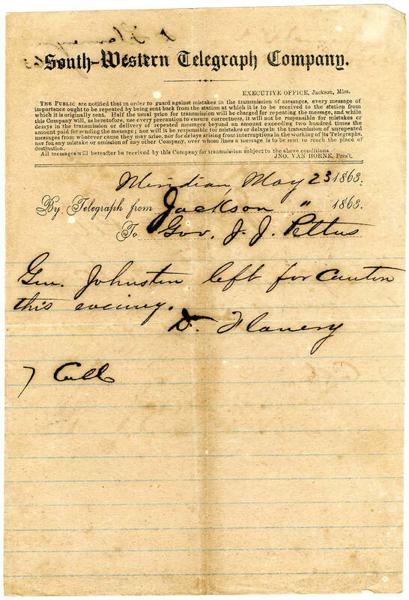 South-Western Telegraph Company.
EXECUTIVE OFFICE, Jackson, Miss.
THE PUBLIC are notified that in order to guard against mistakes in the transmission of messages, every message of
importance ought to be repeated by being sent back from the station at which it is to be received to the station from
which it is originally sent. Half the usual price for transmission will be charged for repeating the message, and while
this Company will, as heretofore, use every precaution to ensure correctness, it will not be responsible for mistakes or
delays in the transmission or delivery of repeated messages beyond an amount exceeding two hundred times the
amount paid for sending the message; nor will it be responsible for mistakes or delays in the transmission of unrepeated
messages from whatever cause they may arise, nor for delays arising from interruptions in the working of its Telegraphs,
nor for any mistake or omission of any other Company, over whose lines a message is to be sent to reach the place of
destination.
All messages will hereafter be received by this Company for transmission subject to the above conditions.
JNO. VAN HORNE, Pres't.
Meridian, May 23 1863.
By Telegraph from Jackson " 1863.
To Gov. J. J. Pettus
Gen. Johnston left for Canton
this evening.
D. Flanery
7 Coll